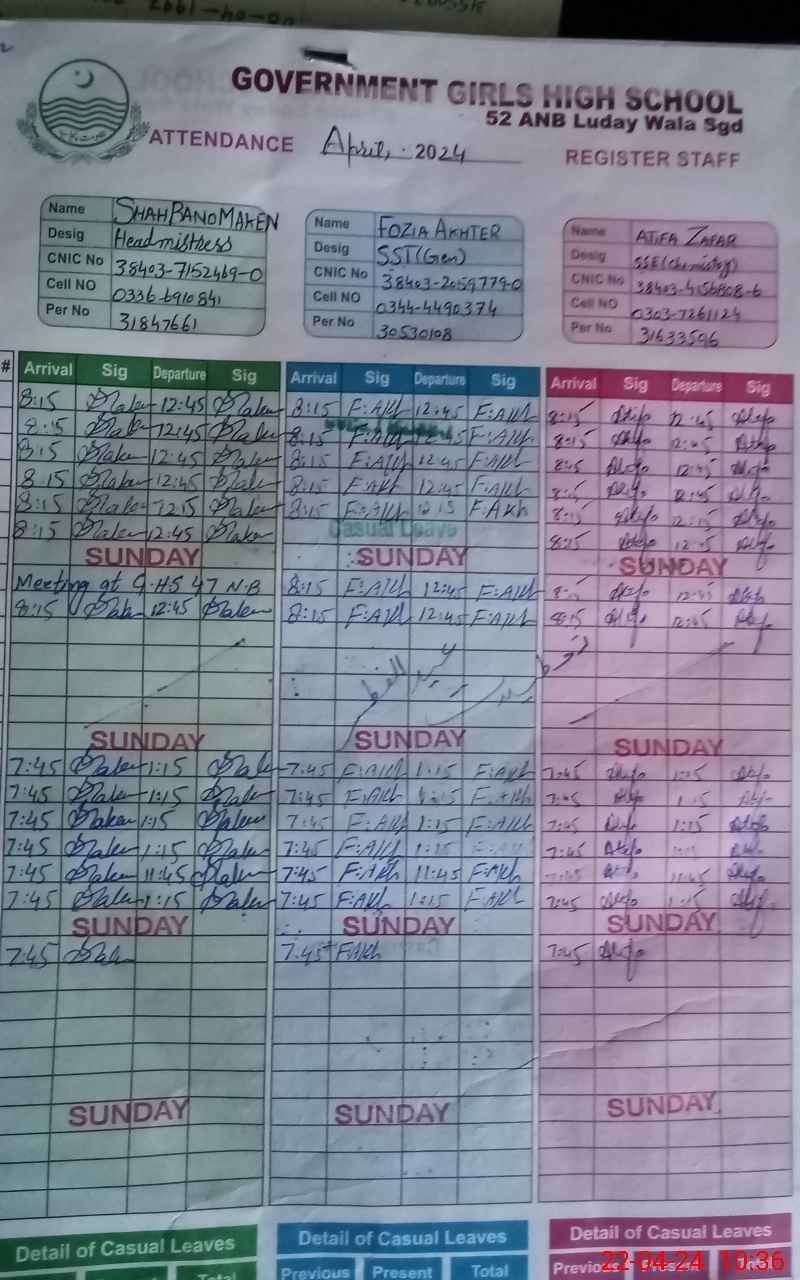 GOVERNMENT GIRLS HIGH SCHOOL
52 ANB Luday Wala Sgd
ATTENDANCE April, . 2024 REGISTER STAFF
Name SHAHBANO MAKEN Name FOZIA AKHTER Name ATIFA ZAFAR
Desig Headmistress Desig SST(Gen) Desig SSE(chemistry)
CNIC No 38403-7152469-0 CNIC No 38403-2059779-0 CNIC No 38403-4156808-6
Cell NO 0336-6910841 Cell NO 0344-4490374 Cell NO 0303-7261124
Per No 31847661 Per No 30530108 Per No 31633596
# Arrival Sig Departure Sig Arrival Sig Departure Sig Arrival Sig Departure Sig
8:15 Maken 12:45 Maken 8:15 F:AKh 12:45 F:AKh 8:15 Atifa 12:45 Atifa
8:15 Maken 12:45 Maken 8:15 F:AKh 12:45 F:AKh 8:15 Atifa 12:45 Atifa
8:15 Maken 12:45 Maken 8:15 F:AKh 12:45 F:AKh Atifa 12:45 Atifa
8:15 Maken 12:45 Maken 8:15 F:AKh 12:45 F:AKh 8:15 Atifa 12:45 Atifa
8:15 Maken 12:15 Maken 8:15 F:AKh 12:15 F:AKh 8:15 Atifa 12:15 Atifa
8:15 Maken 12:45 Maken Casual Leave 8:15 Atifa 12:45 Atifa
SUNDAY SUNDAY SUNDAY
Meeting at G.H.S 47 N.B 8:15 F:AKh 12:45 F:AKh 8:15 Atifa 12:45 Atifa
8:15 Maken 12:45 Maken 8:15 F:AKh 12:45 F:AKh 8:15 Atifa 12:45 Atifa
عید الفطر
SUNDAY SUNDAY SUNDAY
7:45 Maken 1:15 Maken 7:45 F:AKh 1:15 F:AKh 7:45 Atifa 1:15 Atifa
7:45 Maken 1:15 Maken 7:45 F:AKh 1:15 F:AKh 7:45 Atifa 1:15 Atifa
7:45 Maken 1:15 Maken 7:45 F:AKh 1:15 F:AKh 7:45 Atifa 1:15 Atifa
7:45 Maken 1:15 Maken 7:45 F:AKh 1:15 7:45 Atifa Atifa
7:45 Maken 11:45 Maken 7:45 F:AKh 11:45 F:AKh 7:45 Atifa 11:45 Atifa
7:45 Maken 1:15 Maken 7:45 F:AKh 1:15 F:AKh 7:45 Atifa 1:15 Atifa
SUNDAY SUNDAY SUNDAY
7:45 Maken 7:45 F:AKh 7:45 Atifa
SUNDAY SUNDAY SUNDAY
Detail of Casual Leaves Detail of Casual Leaves Detail of Casual Leaves
Total Previous Present Total Previous Present
22-04-24 10:36